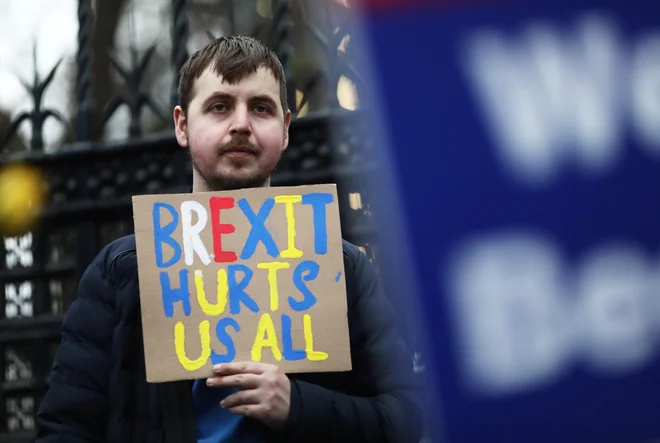 BREXIT
HURTS
US ALL